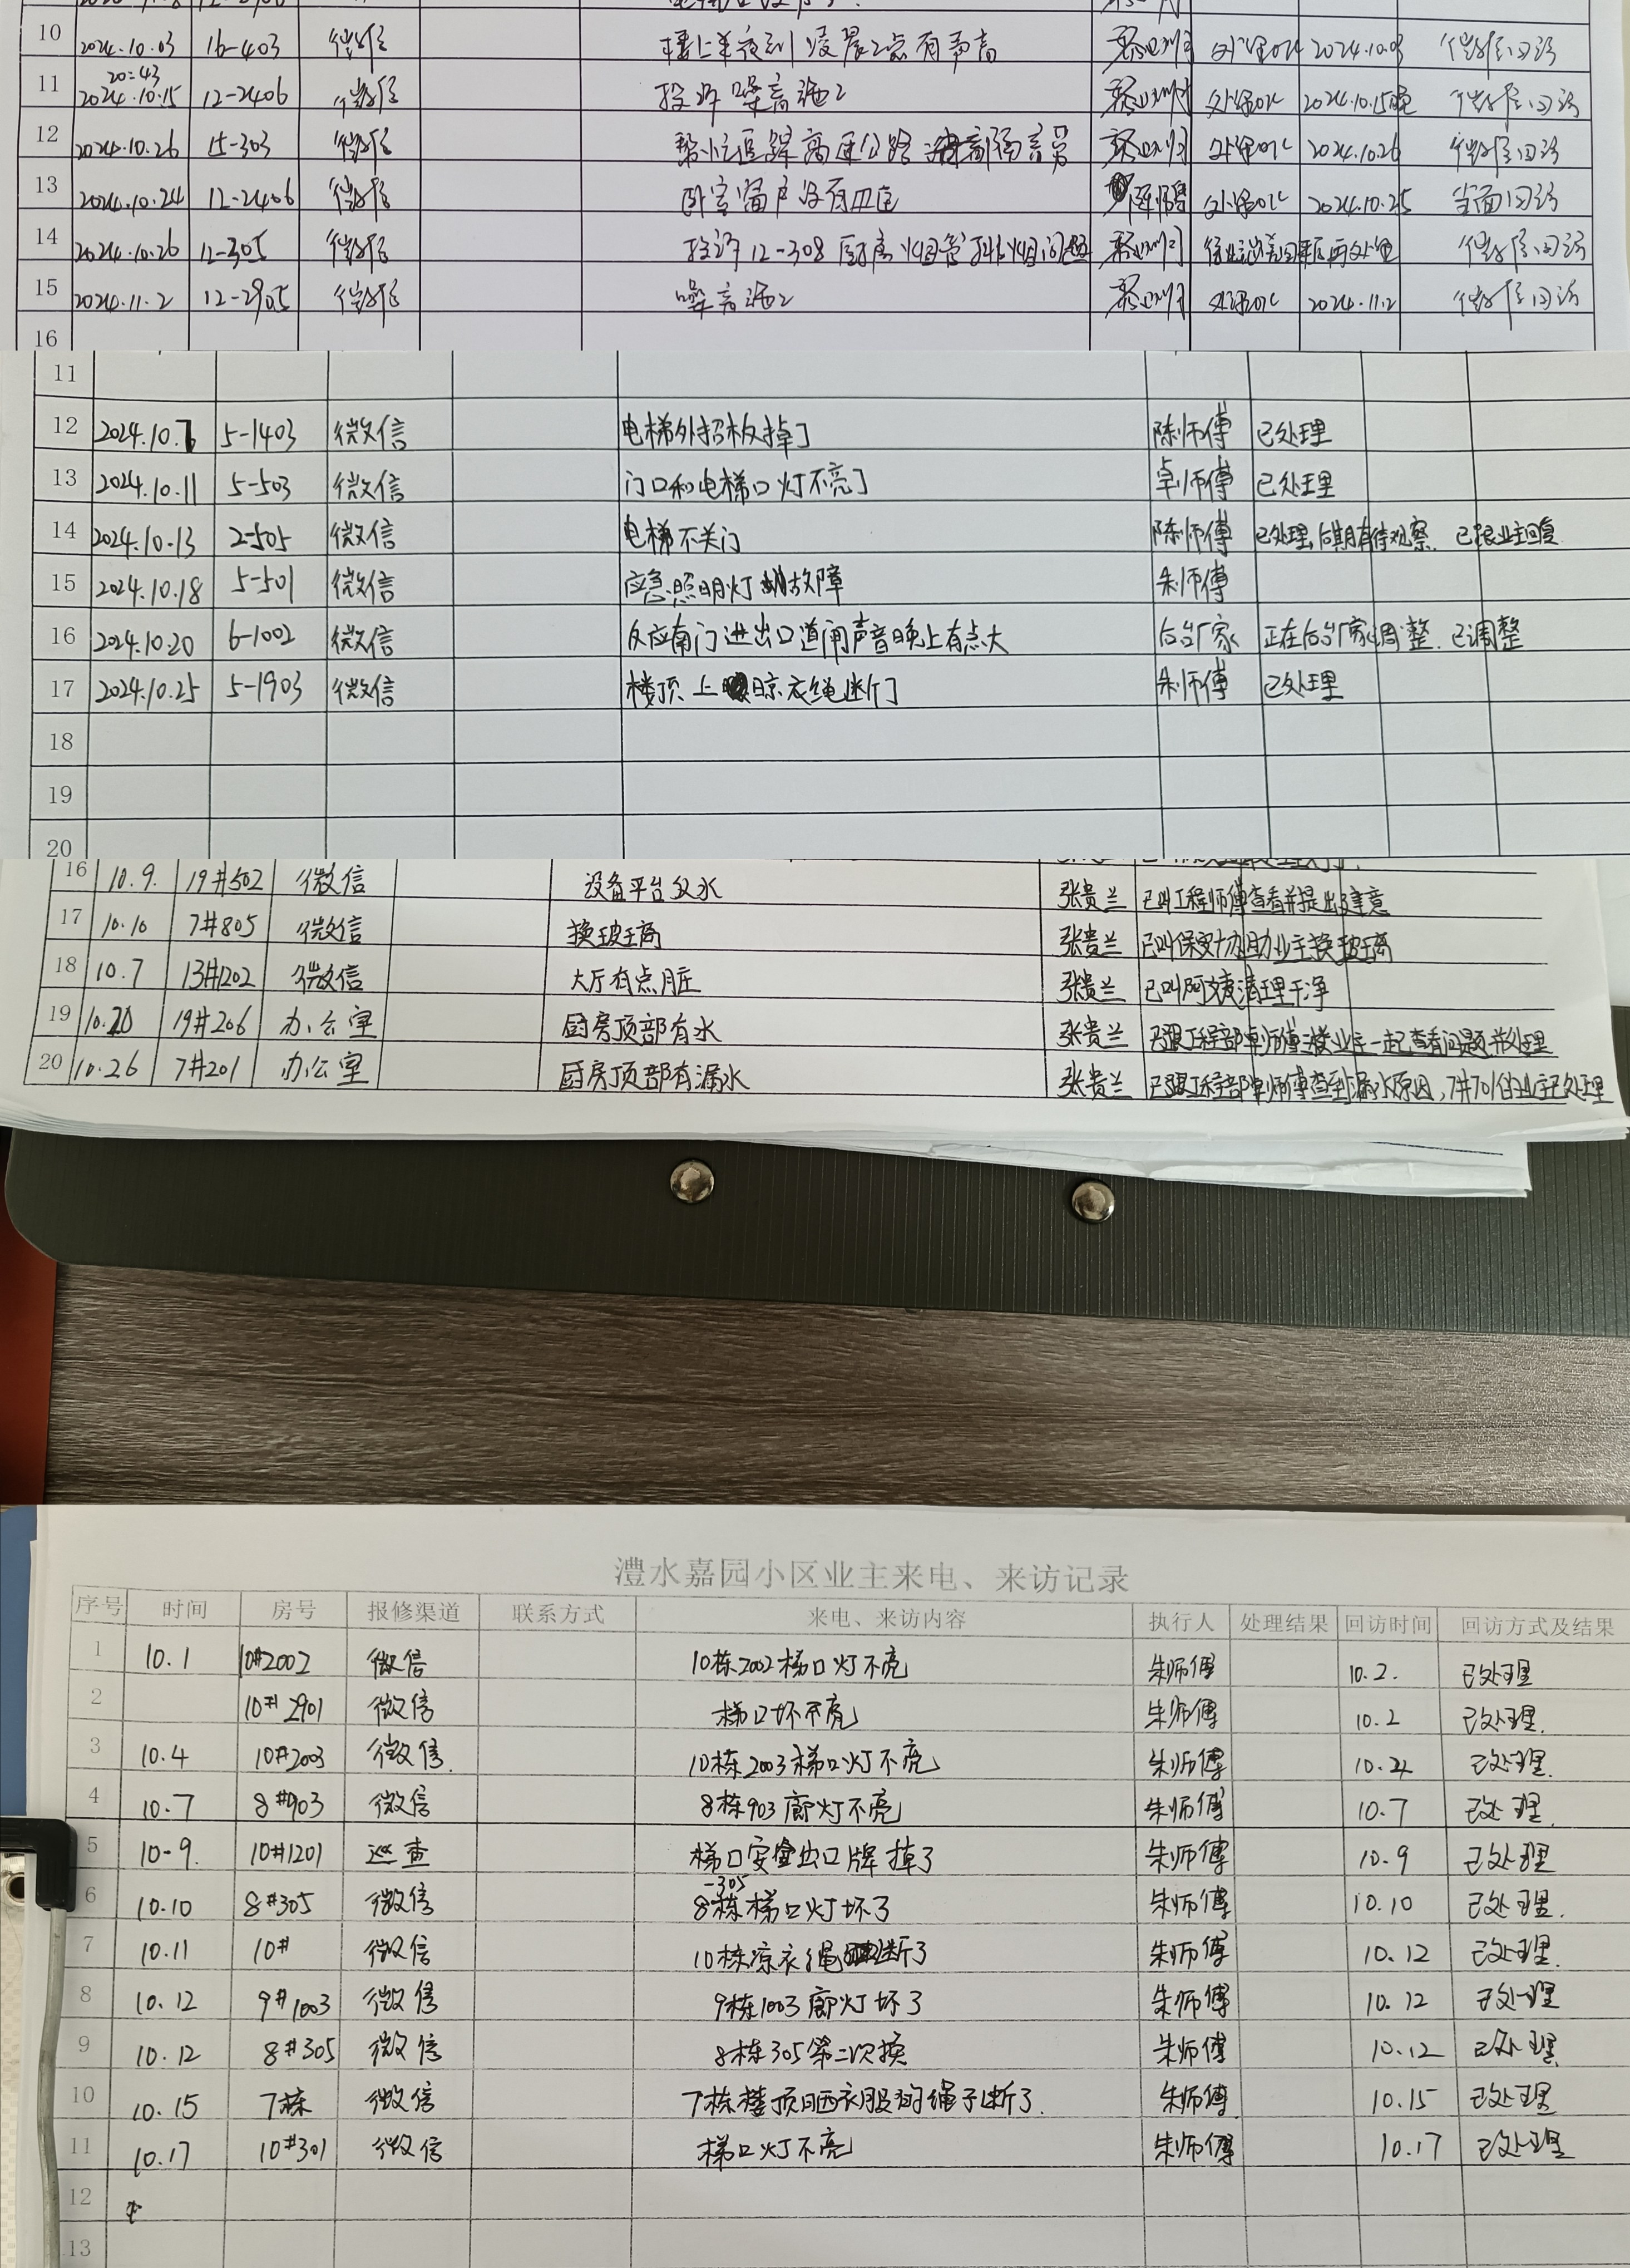 10 2024.10.03 16-403 微信 楼上半夜到凌晨2点有声音 处理OK 2024.10.03 微信回访
20:43
11 2024.10.15 12-2406 微信 投诉噪音 处理OK 2024.10.15 微信回访
12 2024.10.26 15-303 微信 高速公路 隔音 处理OK 2024.10.26 微信回访
13 2024.10.24 12-2406 微信 卧室窗户没有 处理OK 2024.10.25 当面回访
14 2024.10.26 12-305 微信 投诉12-308厨房烟管排烟问题 微信回访
15 2024.11.2 12-2905 微信 噪音 处理OK 2024.11.2 微信回访
16
11
12 2024.10.7 5-1403 微信 电梯外招板掉了 陈师傅 已处理
13 2024.10.11 5-503 微信 门口和电梯口灯不亮了 卓师傅 已处理
14 2024.10.13 2-505 微信 电梯不关门 陈师傅 已处理,后期有待观察. 已跟业主回复
15 2024.10.18 5-501 微信 应急照明灯故障 朱师傅
16 2024.10.20 6-1002 微信 反应南门进出口道闸声音晚上有点大 后台厂家 正在后台厂家调整. 已调整
17 2024.10.25 5-1903 微信 楼顶上晾衣绳断了 朱师傅 已处理
18
19
20
16 10.9. 19#502 微信 设备平台 水 张贵兰 已叫工程师傅查看并提出建意
17 10.10 7#805 微信 换玻璃 张贵兰 已叫保安协助业主换玻璃
18 10.7 13#1202 微信 大厅有点脏 张贵兰 已叫阿姨清理干净
19 10.20 19#206 办公室 厨房顶部有水 张贵兰 已跟工程部卓师傅 楼业主一起查看问题并处理
20 10.26 7#201 办公室 厨房顶部有漏水 张贵兰 已跟工程部卓师傅查到漏水原因,7#701的业主已处理
澧水嘉园小区业主来电、来访记录
序号 时间 房号 报修渠道 联系方式 来电、来访内容 执行人 处理结果 回访时间 回访方式及结果
1 10.1 10#2002 微信 10栋2002梯口灯不亮 朱师傅 10.2. 已处理
2 10#2901 微信 梯口坏不亮 朱师傅 10.2 已处理.
3 10.4 10#2003 微信. 10栋2003梯口灯不亮 朱师傅 10.4 已处理.
4 10.7 8#903 微信 8栋903廊灯不亮 朱师傅 10.7 已处理.
5 10-9. 10#1201 巡查 梯口安全出口牌掉了 朱师傅 10.9 已处理
-305
6 10.10 8#305 微信 8栋梯口灯坏了 朱师傅 10.10 已处理.
7 10.11 10# 微信 10栋凉衣绳断了 朱师傅 10.12 已处理.
8 10.12 9#1003 微信 9栋1003廊灯坏了 朱师傅 10.12 已处理
9 10.12 8#305 微信 8栋305第二次换 朱师傅 10.12 已处理
10 10.15 7栋 微信 7栋楼顶晒衣服的绳子断了. 朱师傅 10.15 已处理
11 10.17 10#301 微信 梯口灯不亮 朱师傅 10.17 已处理
12
13